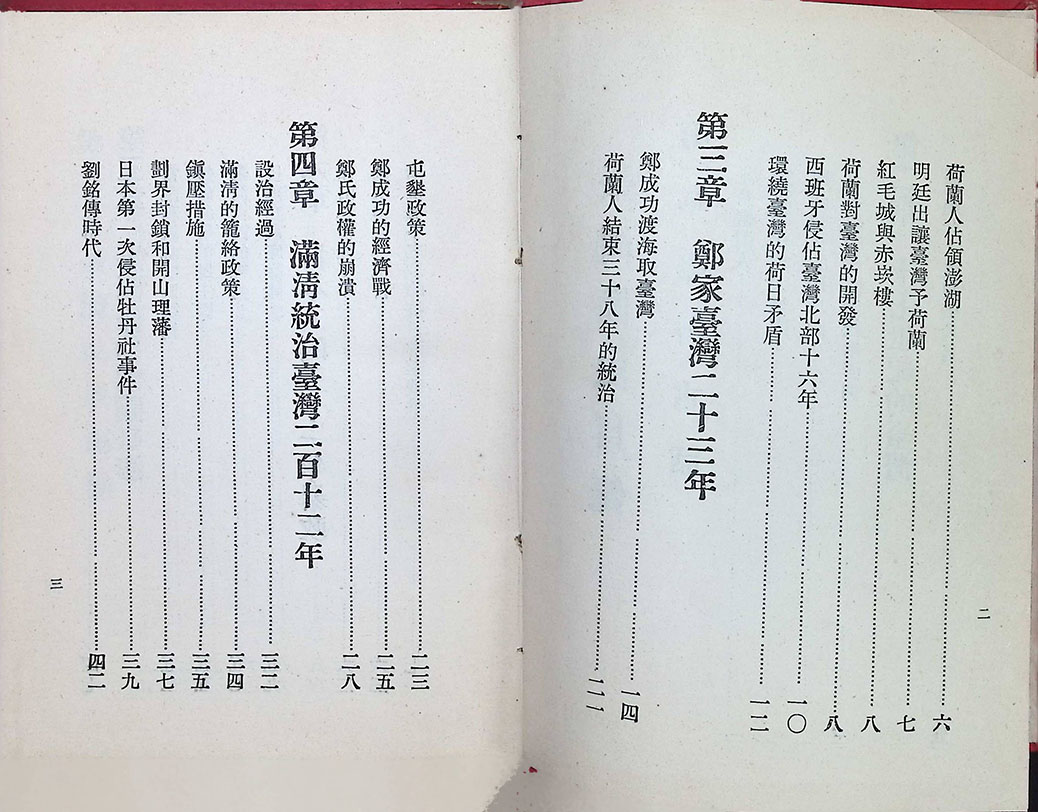 荷蘭人佔領澎湖……六
明廷出讓臺灣予荷蘭……七
紅毛城與赤崁樓……八
荷蘭對臺灣的開發……八
西班牙侵佔臺灣北部十六年……一〇
環繞臺灣的荷日矛盾……一二
第三章　鄭家臺灣二十三年
鄭成功渡海取臺灣……一四
荷蘭人結束三十八年的統治……二一
二
屯墾政策……二三
鄭成功的經濟戰……二五
鄭氏政權的崩潰……二八
第四章　滿淸統治臺灣二百十二年
設治經過……三二
滿淸的籠絡政策……三四
鎭壓措施……三五
劃界封鎖和開山理藩……三七
日本第一次侵佔牡丹社事件……三九
劉銘傳時代……四二
三